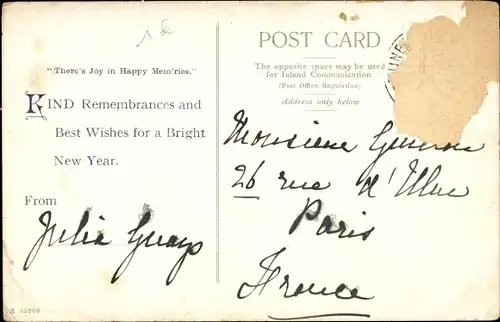 "There's Joy in Happy Mem'ries."
KIND Remembrances and
Best Wishes for a Bright
New Year.
From
Julia
A 05260
POST CARD
The opposite space may be used
for Inland Communication.
(Post Office Regulation)
Address only below
Monsieur
26 rue d'Ulm
Paris
France